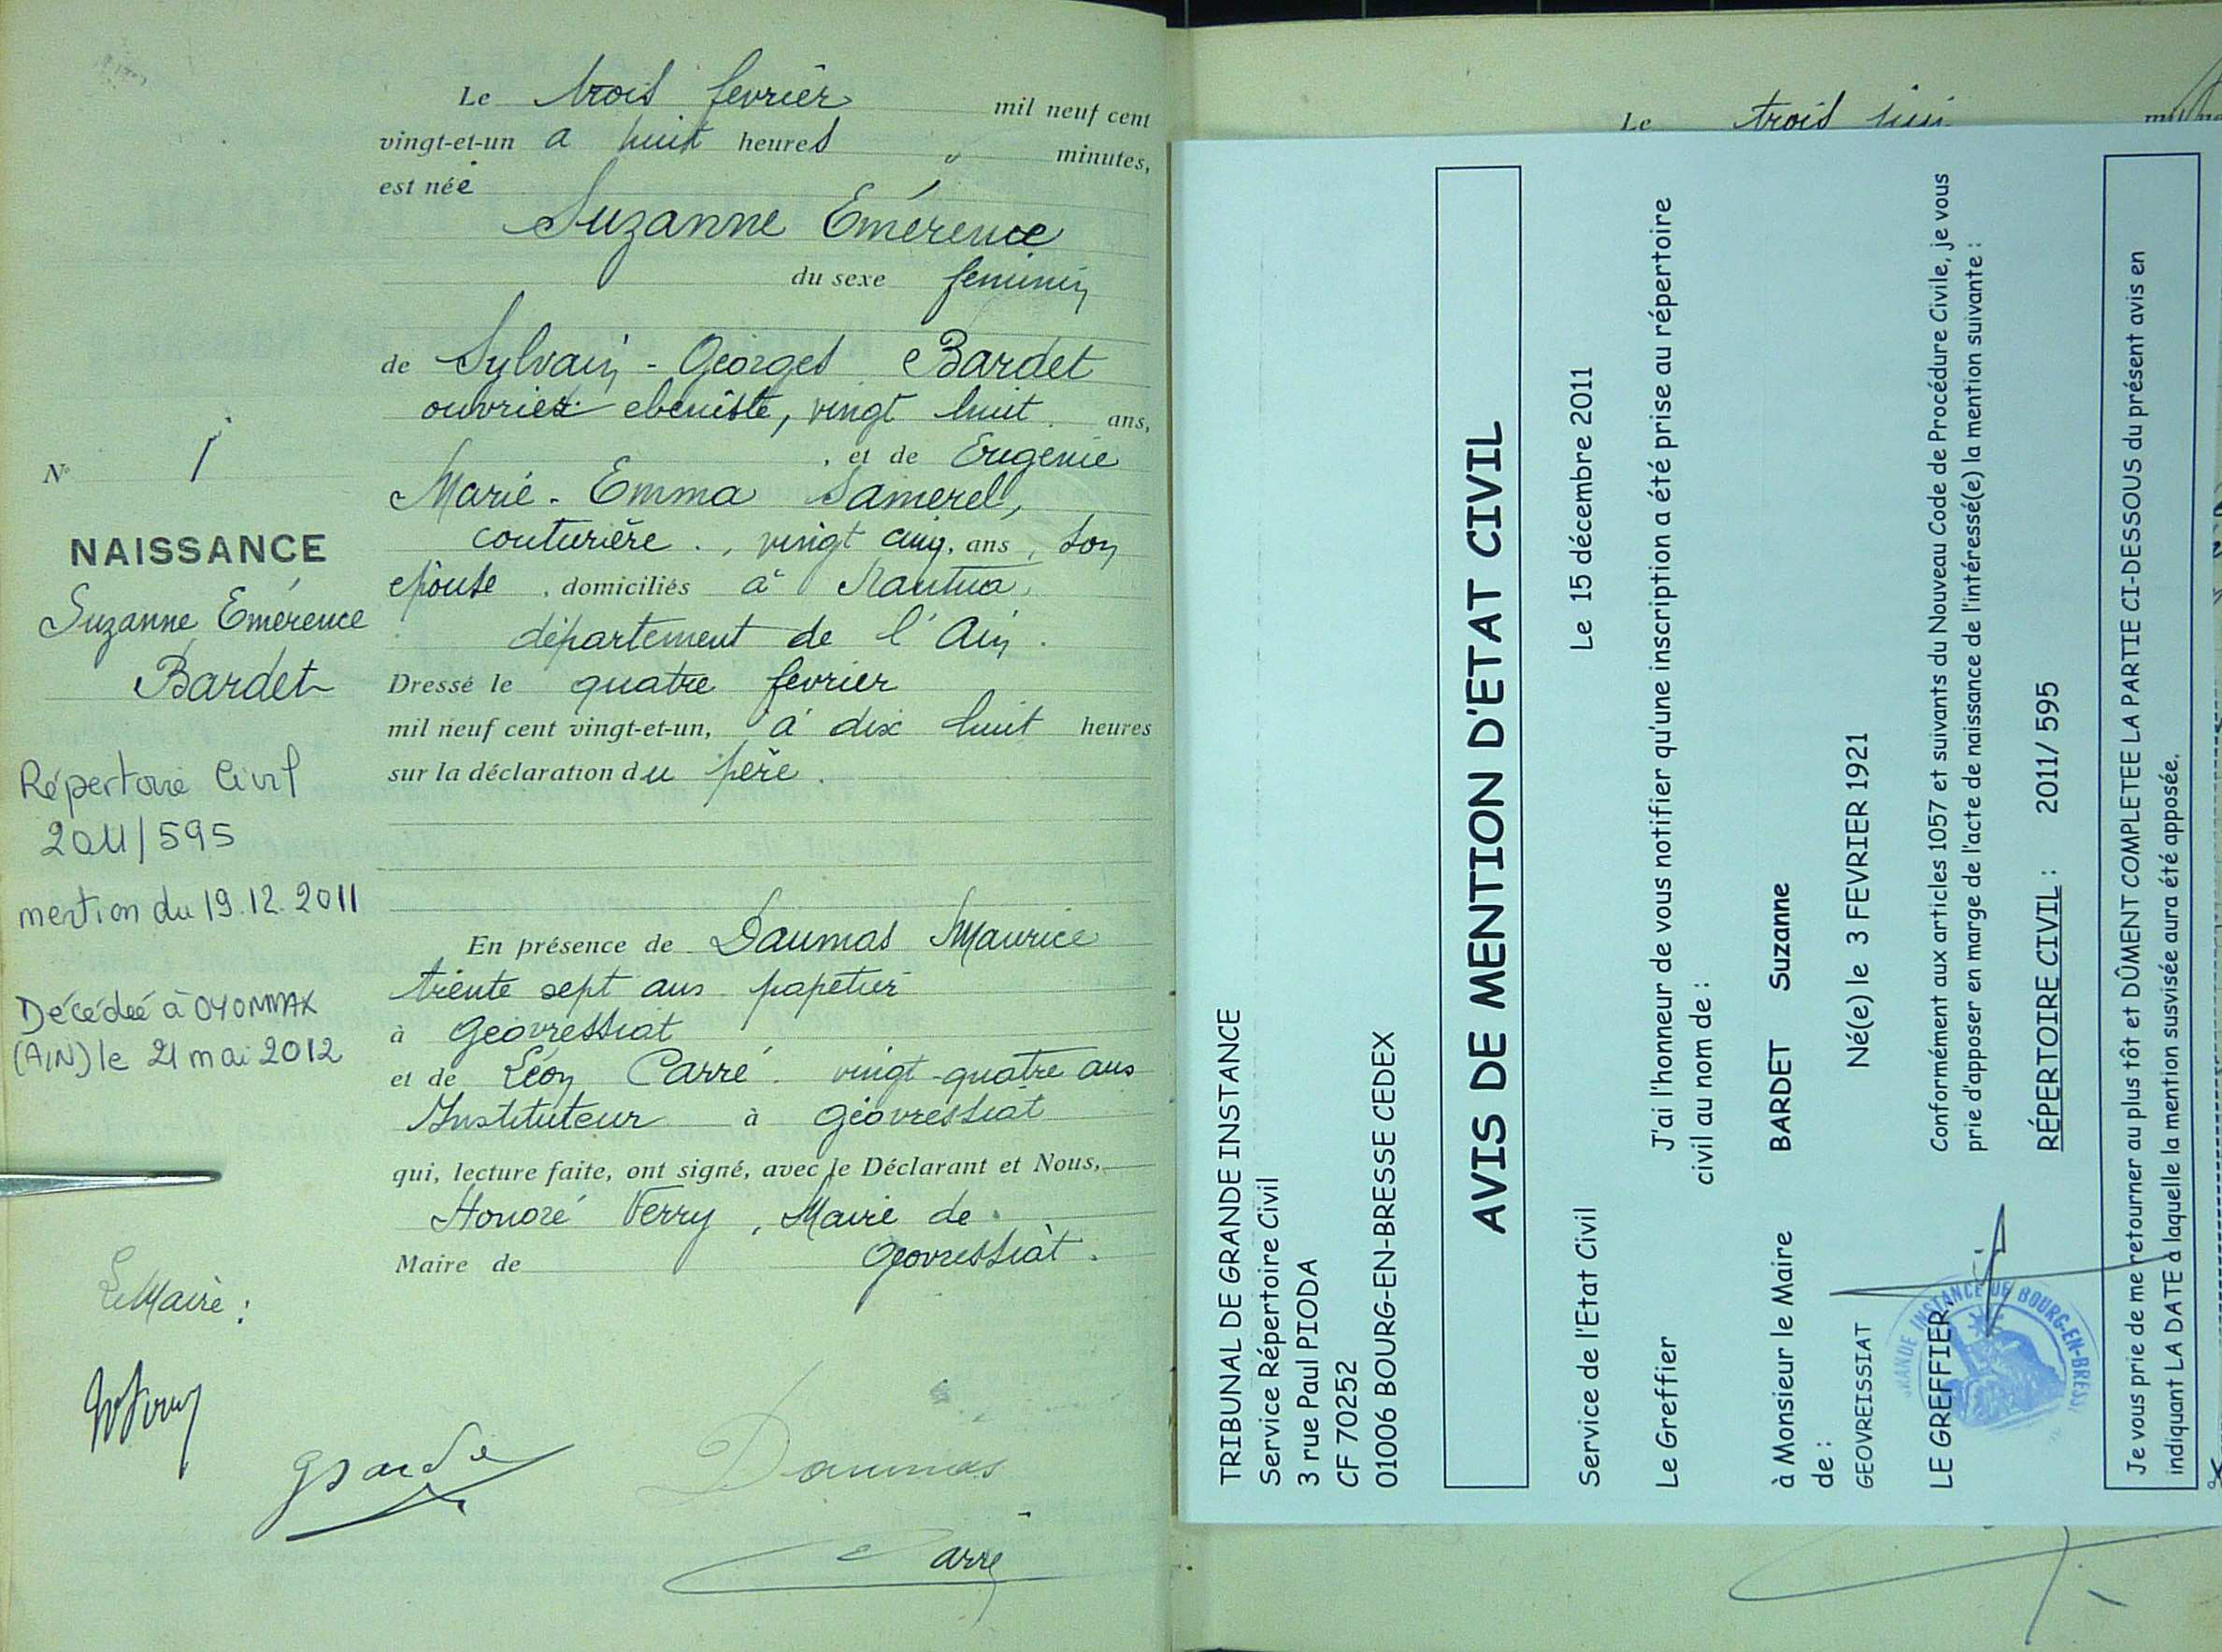 Le trois fevrier mil neuf cent
vingt-et-un a huit heures " minutes,
est née
Suzanne Emérence
du sexe feminin
de Sylvain - Georges Bardet
ouvrier ebeniste, vingt huit ans,
, et de Eugenie
Marie - Emma Samerel,
couturière , vingt cinq, ans , son
epouse , domiciliés à Nantua,
département de l'Ain.
Dressé le quatre fevrier
mil neuf cent vingt-et-un, à dix huit heures
sur la déclaration du père.
En présence de Daumas Maurice
trente sept ans papetier
à Geovressiat
et de Léon Carré. vingt-quatre ans
Instituteur à Géovressiat
qui, lecture faite, ont signé, avec le Déclarant et Nous,
Honoré Verry, Maire de
Maire de Geovressiat.
N° 1
NAISSANCE
Suzanne Emérence
Bardet
Répertoire Civil
2011/595
mention du 19.12.2011
Décédée à OYONNAX
(AIN) le 21 mai 2012
Le Maire :
Daumas
Carré
Le trois
TRIBUNAL DE GRANDE INSTANCE
Service Répertoire Civil
3 rue Paul PIODA
CF 70252
01006 BOURG-EN-BRESSE CEDEX
AVIS DE MENTION D'ETAT CIVIL
Service de l'Etat Civil Le 15 décembre 2011
Le Greffier
J'ai l'honneur de vous notifier qu'une inscription a été prise au répertoire
civil au nom de :
à Monsieur le Maire BARDET Suzanne
de :
GEOVREISSIAT Né(e) le 3 FEVRIER 1921
LE GREFFIER, Conformément aux articles 1057 et suivants du Nouveau Code de Procédure Civile, je vous
prie d'apposer en marge de l'acte de naissance de l'intéressé(e) la mention suivante :
RÉPERTOIRE CIVIL : 2011/ 595
GRANDE INSTANCE DE BOURG-EN-BRESSE
Je vous prie de me retourner au plus tôt et DÛMENT COMPLETEE LA PARTIE CI-DESSOUS du présent avis en
indiquant LA DATE à laquelle la mention susvisée aura été apposée.